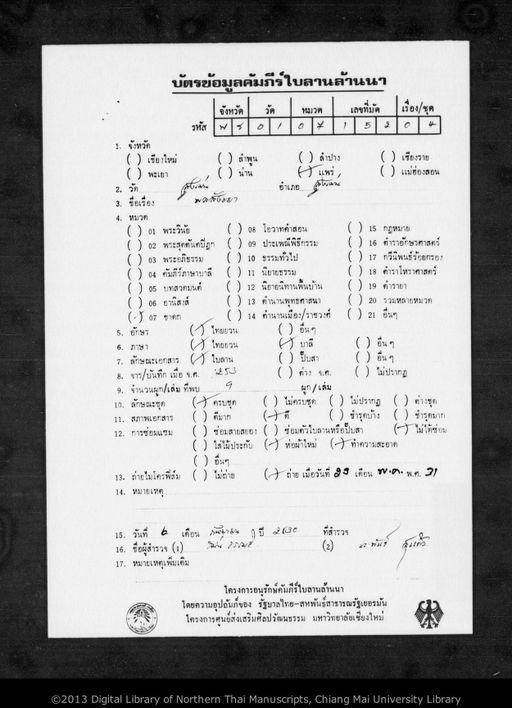 บัตรข้อมูลคัมภีร์ใบลานล้านนา
จังหวัด วัด หมวด เลขที่มัด เรื่อง/ชุด
รหัส พ ร 0 1 0 7 1 5 2 0 4
1. จังหวัด
( ) เชียงใหม่ ( ) ลำพูน ( ) ลำปาง ( ) เชียงราย
( ) พะเยา ( ) น่าน (/) แพร่ ( ) แม่ฮ่องสอน
2. วัด สูงเม่น อำเภอ สูงเม่น
3. ชื่อเรื่อง
4. หมวด
( ) 01 พระวินัย ( ) 08 โอวาทคำสอน ( ) 15 กฎหมาย
( ) 02 พระสุตตันตปิฎก ( ) 09 ประเพณีพิธีกรรม ( ) 16 ตำราอักษรศาสตร์
( ) 03 พระอภิธรรม ( ) 10 ธรรมทั่วไป ( ) 17 กวีนิพนธ์ร้อยกรอง
( ) 04 คัมภีร์ภาษาบาลี ( ) 11 นิยายธรรม ( ) 18 ตำราโหราศาสตร์
( ) 05 บทสวดมนต์ ( ) 12 นิยายนิทานพื้นบ้าน ( ) 19 ตำรายา
( ) 06 อานิสงส์ ( ) 13 ตำนานพุทธศาสนา ( ) 20 รวมหลายหมวด
(/) 07 ชาดก ( ) 14 ตำนานเมือง/ราชวงศ์ ( ) 21 อื่นๆ
5. อักษร (/) ไทยยวน ( ) อื่นๆ
6. ภาษา (/) ไทยยวน (/) บาลี ( ) อื่น ๆ
7. ลักษณะเอกสาร (/) ใบลาน ( ) ปั๊บสา ( ) อื่น ๆ
8. จาร/บันทึก เมื่อ จ.ศ. ( ) ต่าง จ.ศ. ( ) ไม่ปรากฏ
9. จำนวนผูก/เล่ม ที่พบ 9 ผูก/เล่ม
10. ลักษณะชุด (/) ครบชุด ( ) ไม่ครบชุด ( ) ไม่ปรากฏ ( ) ต่างชุด
11. สภาพเอกสาร ( ) ดีมาก (/) ดี ( ) ชำรุดบ้าง ( ) ชำรุดมาก
12. การซ่อมแซม ( ) ซ่อมสายสยอง ( ) ซ่อมตัวใบลานหรือปั๊บสา (/) ไม่ได้ซ่อม
( ) ใส่ไม้ประกับ (/) ห่อผ้าใหม่ (/) ทำความสะอาด
( ) อื่นๆ
13. ถ่ายไมโครฟิล์ม ( ) ไม่ถ่าย (/) ถ่าย เมื่อวันที่ 23 เดือน พ.ค. พ.ศ. 31
14. หมายเหตุ
15. วันที่ 6 เดือน ปี 2530 ที่สำรวจ
16. ชื่อผู้สำรวจ (1) (2)
17. หมายเหตุเพิ่มเติม
โครงการอนุรักษ์คัมภีร์ใบลานล้านนา
โดยความอุปถัมภ์ของ รัฐบาลไทย-สหพันธ์สาธารณรัฐเยอรมัน
โครงการศูนย์ส่งเสริมศิลปวัฒนธรรม มหาวิทยาลัยเชียงใหม่
©2013 Digital Library of Northern Thai Manuscripts, Chiang Mai University Library